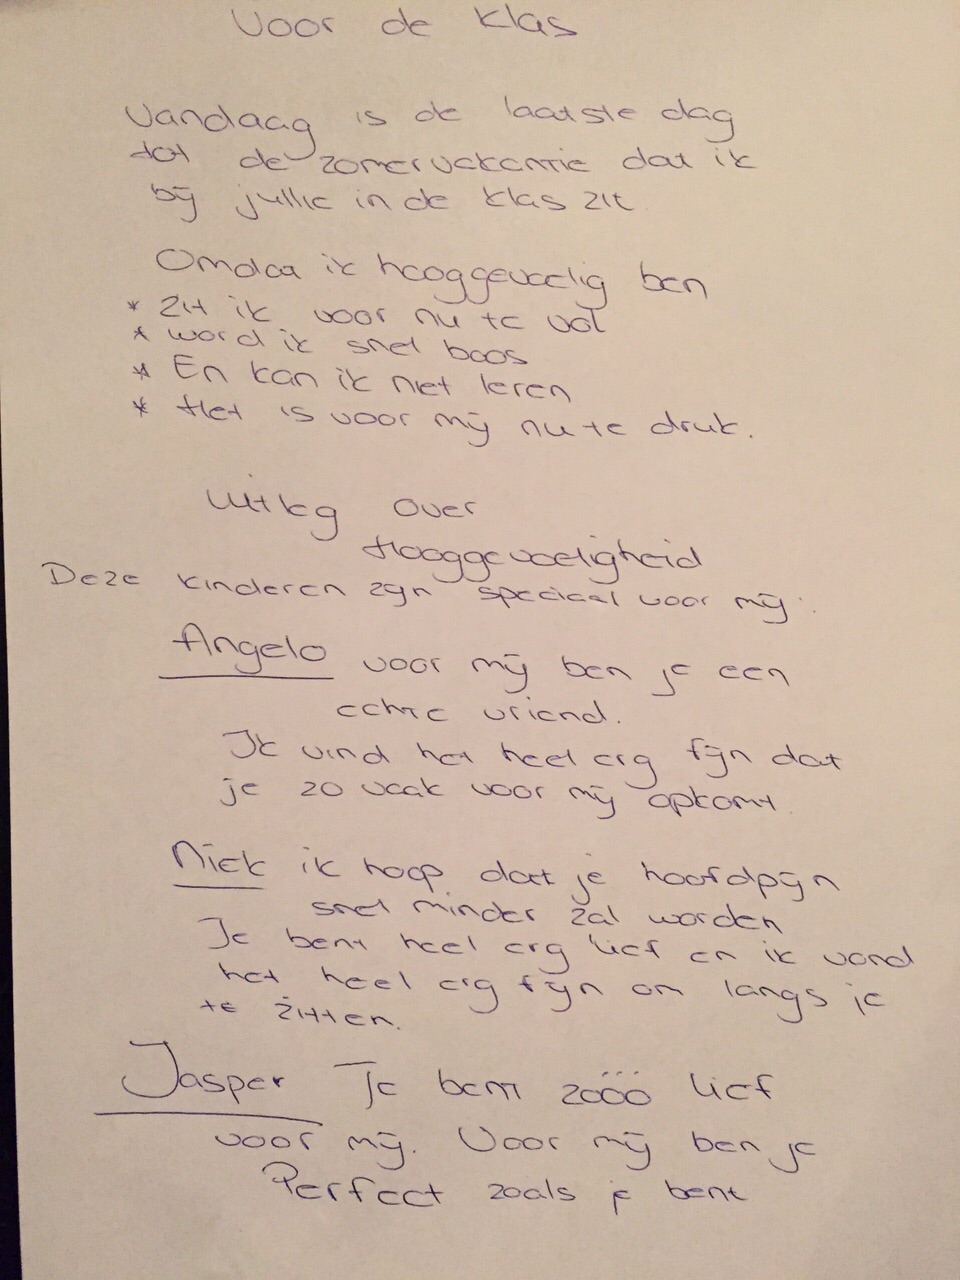 Voor de klas
Vandaag is de laatste dag
tot de zomervakantie dat ik
bij jullie in de klas zit
Omdat ik hooggevoelig ben
* zit ik voor nu te vol
* word ik snel boos
* En kan ik niet leren
* Het is voor mij nu te druk.
Uitleg over
Hooggevoeligheid
Deze kinderen zijn speciaal voor mij:
Angelo voor mij ben je een
echte vriend.
Ik vind het heel erg fijn dat
je zo vaak voor mij opkomt.
Niek ik hoop dat je hoofdpijn
snel minder zal worden
Je bent heel erg lief en ik vond
het heel erg fijn om langs je
te zitten.
Jasper Je bent zööö lief
voor mij. Voor mij ben je
Perfect zoals je bent